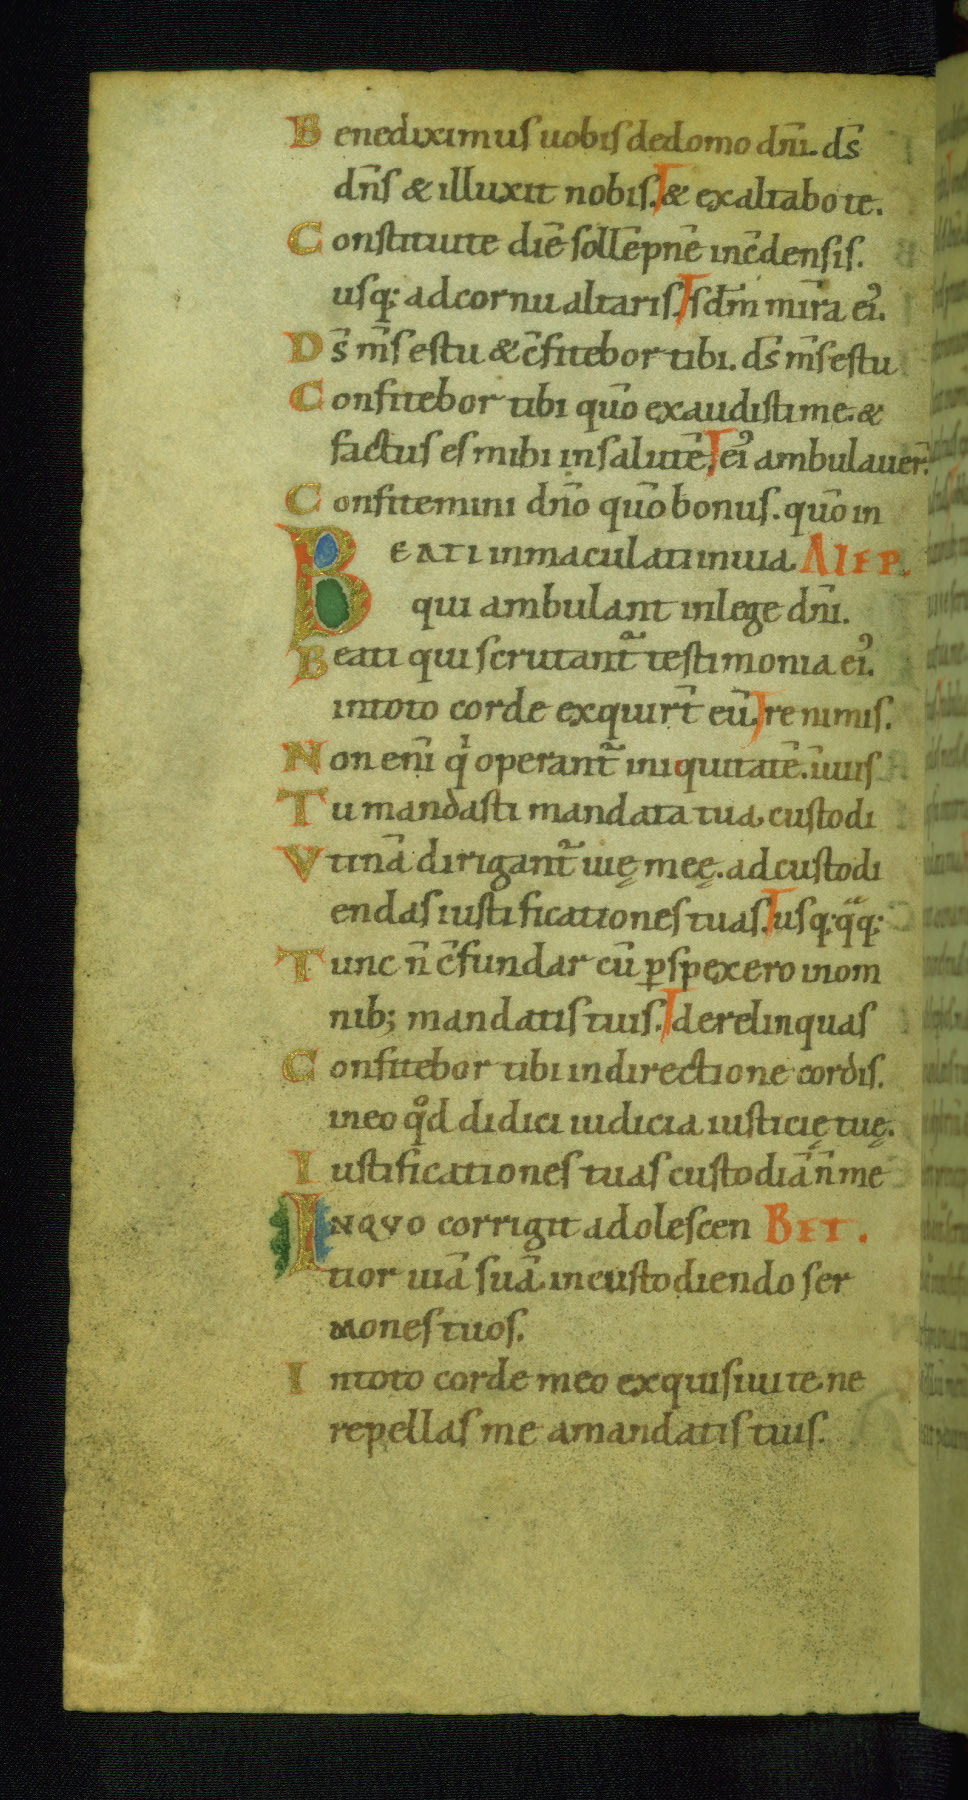 Benediximus uobis dedomo dn̄i. ds̄
dn̄s & illuxit nobis. & exaltabo te.
Constituite diē sollēpnē inc̄densis.
usq; adcornu altaris. sdm̄ mīra ei᾽.
Ds̄ m̄s estu & c̄fitebor tibi. ds̄ m̄s estu
Confitebor tibi quō exaudisti me. &
factus es mihi insalutē. ei᾽ ambulauer̄.
Confitemini dn̄o quō bonus. quō in
BEATI inmaculati inuia. ALEP.
qui ambulant inlege dn̄i.
Beati qui scrutant᷒ testimonia ei᾽.
intoto corde exquirt̄ eū. re nimis.
Non enī qⁱ operant᷒ iniquitatē. īuiis
Tu mandasti mandata tua custodi
Vtinā dirigant᷒ uię meę. adcustodi
endas iustificationes tuas. usq; qᵃq;
Tunc n̄ c̄fundar cū ꝑspexero inom
nib; mandatis tuis. derelinquas
Confitebor tibi indirectione cordis.
ineo qᵒd didici iudicia iusticię tuę.
Iustificationes tuas custodiā n̄ me
INQVO corrigit adolescen BET.
tior uiā suā. incustodiendo ser
mones tuos.
Intoto corde meo exquisiui te. ne
repellas me amandatis tuis.